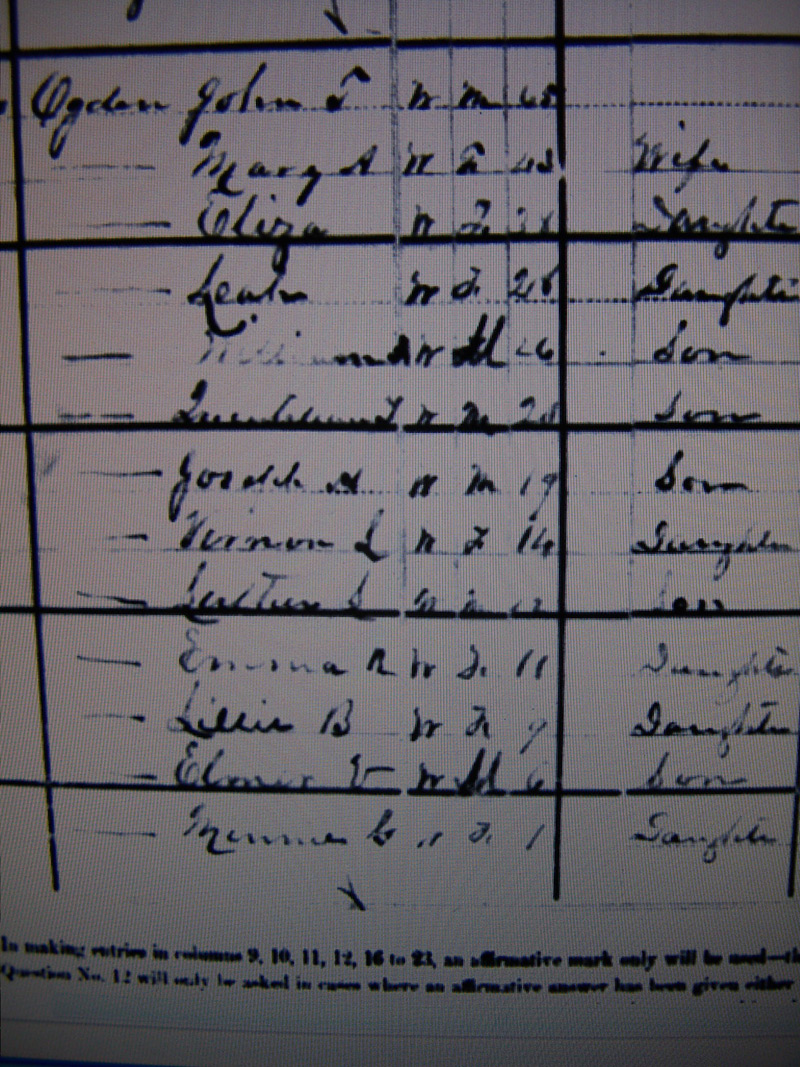 Ogden John T W M
Mary A W F Wife
Eliza W F Daughter
Leah W F Daughter
William W M Son
W M Son
Joseph H W M 19 Son
Vernon L W F 14 Daughter
L W M Son
Emma R W F 11 Daughter
Lillie B W F 9 Daughter
Elmer V W M 6 Son
Minnie G W F 1 Daughter
In making entries in columns 9, 10, 11, 12, 16 to 23, an affirmative mark only will be used—th
Question No. 12 will only be asked in cases where an affirmative answer has been given either